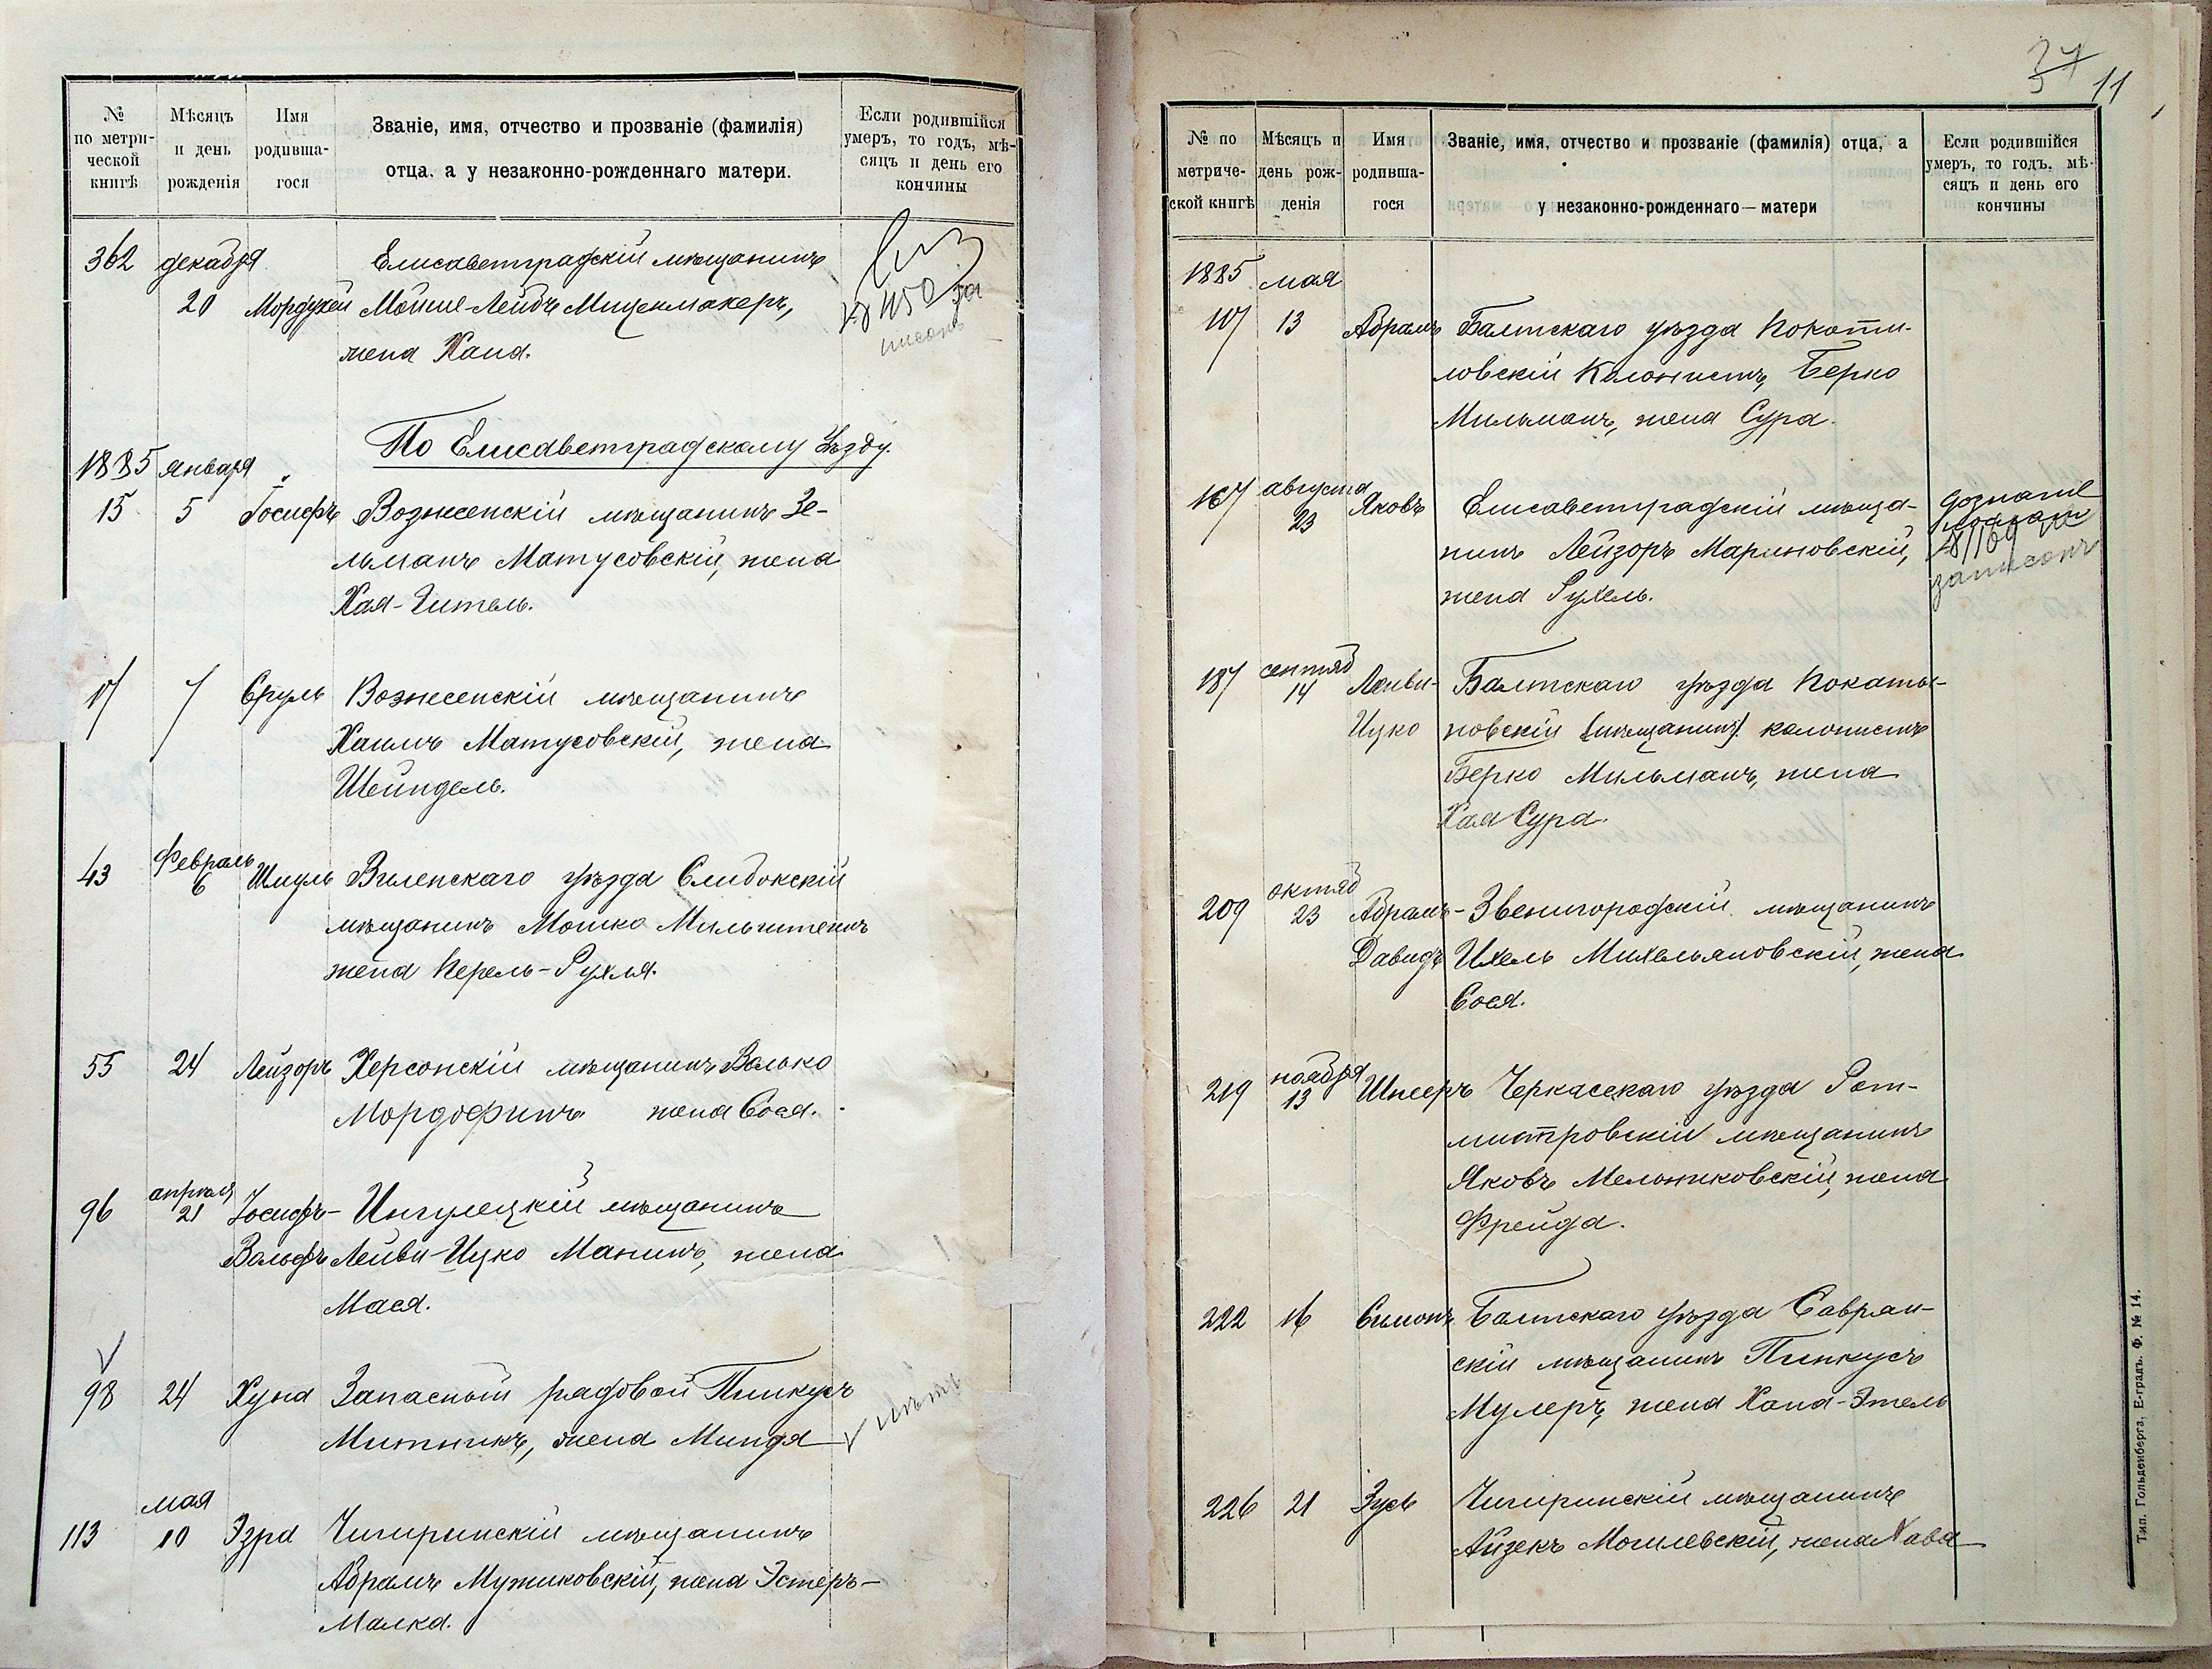 № по метрической книгѣ
Мѣсяцъ и день рожденія
Имя родившагося
Званіе, имя, отчество и прозваніе (фамилія) отца, а у незаконно-рожденнаго матери.
Если родившійся умеръ, то годъ, мѣсяцъ и день его кончины
362 декабря Елисаветградскій мѣщанинъ
20 Мордухей Мойше-Лейбъ Миценмахеръ,
жена Хана.
По Елисаветградскому Уѣзду.
1885 января
15 5 Іосифъ Вознесенскій мѣщанинъ Зе-
льманъ Матусовскій, жена
Хая-Гитель.
17 7 Сруль Вознесенскій мѣщанинъ
Хаимъ Матусовскій, жена
Шейндель.
43 Февраль 6 Шмуль Виленскаго уѣзда Слибокскій
мѣщанинъ Мошко Мильштейнъ
жена Перель-Рухля.
55 24 Лейзоръ Херсонскій мѣщанинъ Волько
Мордофинъ жена Сося.
96 апрѣля 21 Іосифъ- Ингулецкій мѣщанинъ
Вольфъ Лейви-Ицко Манинъ, жена
Мася.
98 24 Хуна Запасный рядовой Пинкусъ
Митникъ, жена Миндя
нѣтъ
мая
113 10 Эзра Чигиринскій мѣщанинъ
Абрамъ Мужиковскій, жена Эстеръ-
Малка.
37 11
№ по метрической книгѣ
Мѣсяцъ и день рожденія
Имя родившагося
Званіе, имя, отчество и прозваніе (фамилія) отца, а у незаконно-рожденнаго — матери
Если родившійся умеръ, то годъ, мѣсяцъ и день его кончины
1885 мая
107 13 Абрамъ Балтскаго уѣзда Покоти-
ловскій Колонистъ, Берко
Мильманъ, жена Сура.
167 августа 23 Яковъ Елисаветградскій мѣща-
нинъ Лейзоръ Мариновскій,
жена Рухель.
дознаніе
записанъ
187 сентяб 14 Лейви- Балтскаго уѣзда Покаты-
Ицко новскій (мѣщанинъ). колонистъ
Берко Мильманъ, жена
Хая Сура.
209 октяб 23 Абрамъ- Звенигородскій мѣщанинъ
Давидъ Ихель Михельяновскій, жена
Сося.
219 ноября 13 Шнееръ Черкасскаго уѣзда Рот-
мистровскій мѣщанинъ
Яковъ Мельниковскій, жена
Фрейда.
222 16 Симонъ Балтскаго уѣзда Савран-
скій мѣщанинъ Пинкусъ
Мулеръ, жена Хана-Этель
226 21 Зусь Чигиринскій мѣщанинъ
Айзекъ Могилевскій, жена Хава
Тип. Гольденберга, Е-градъ. Ф. № 14.